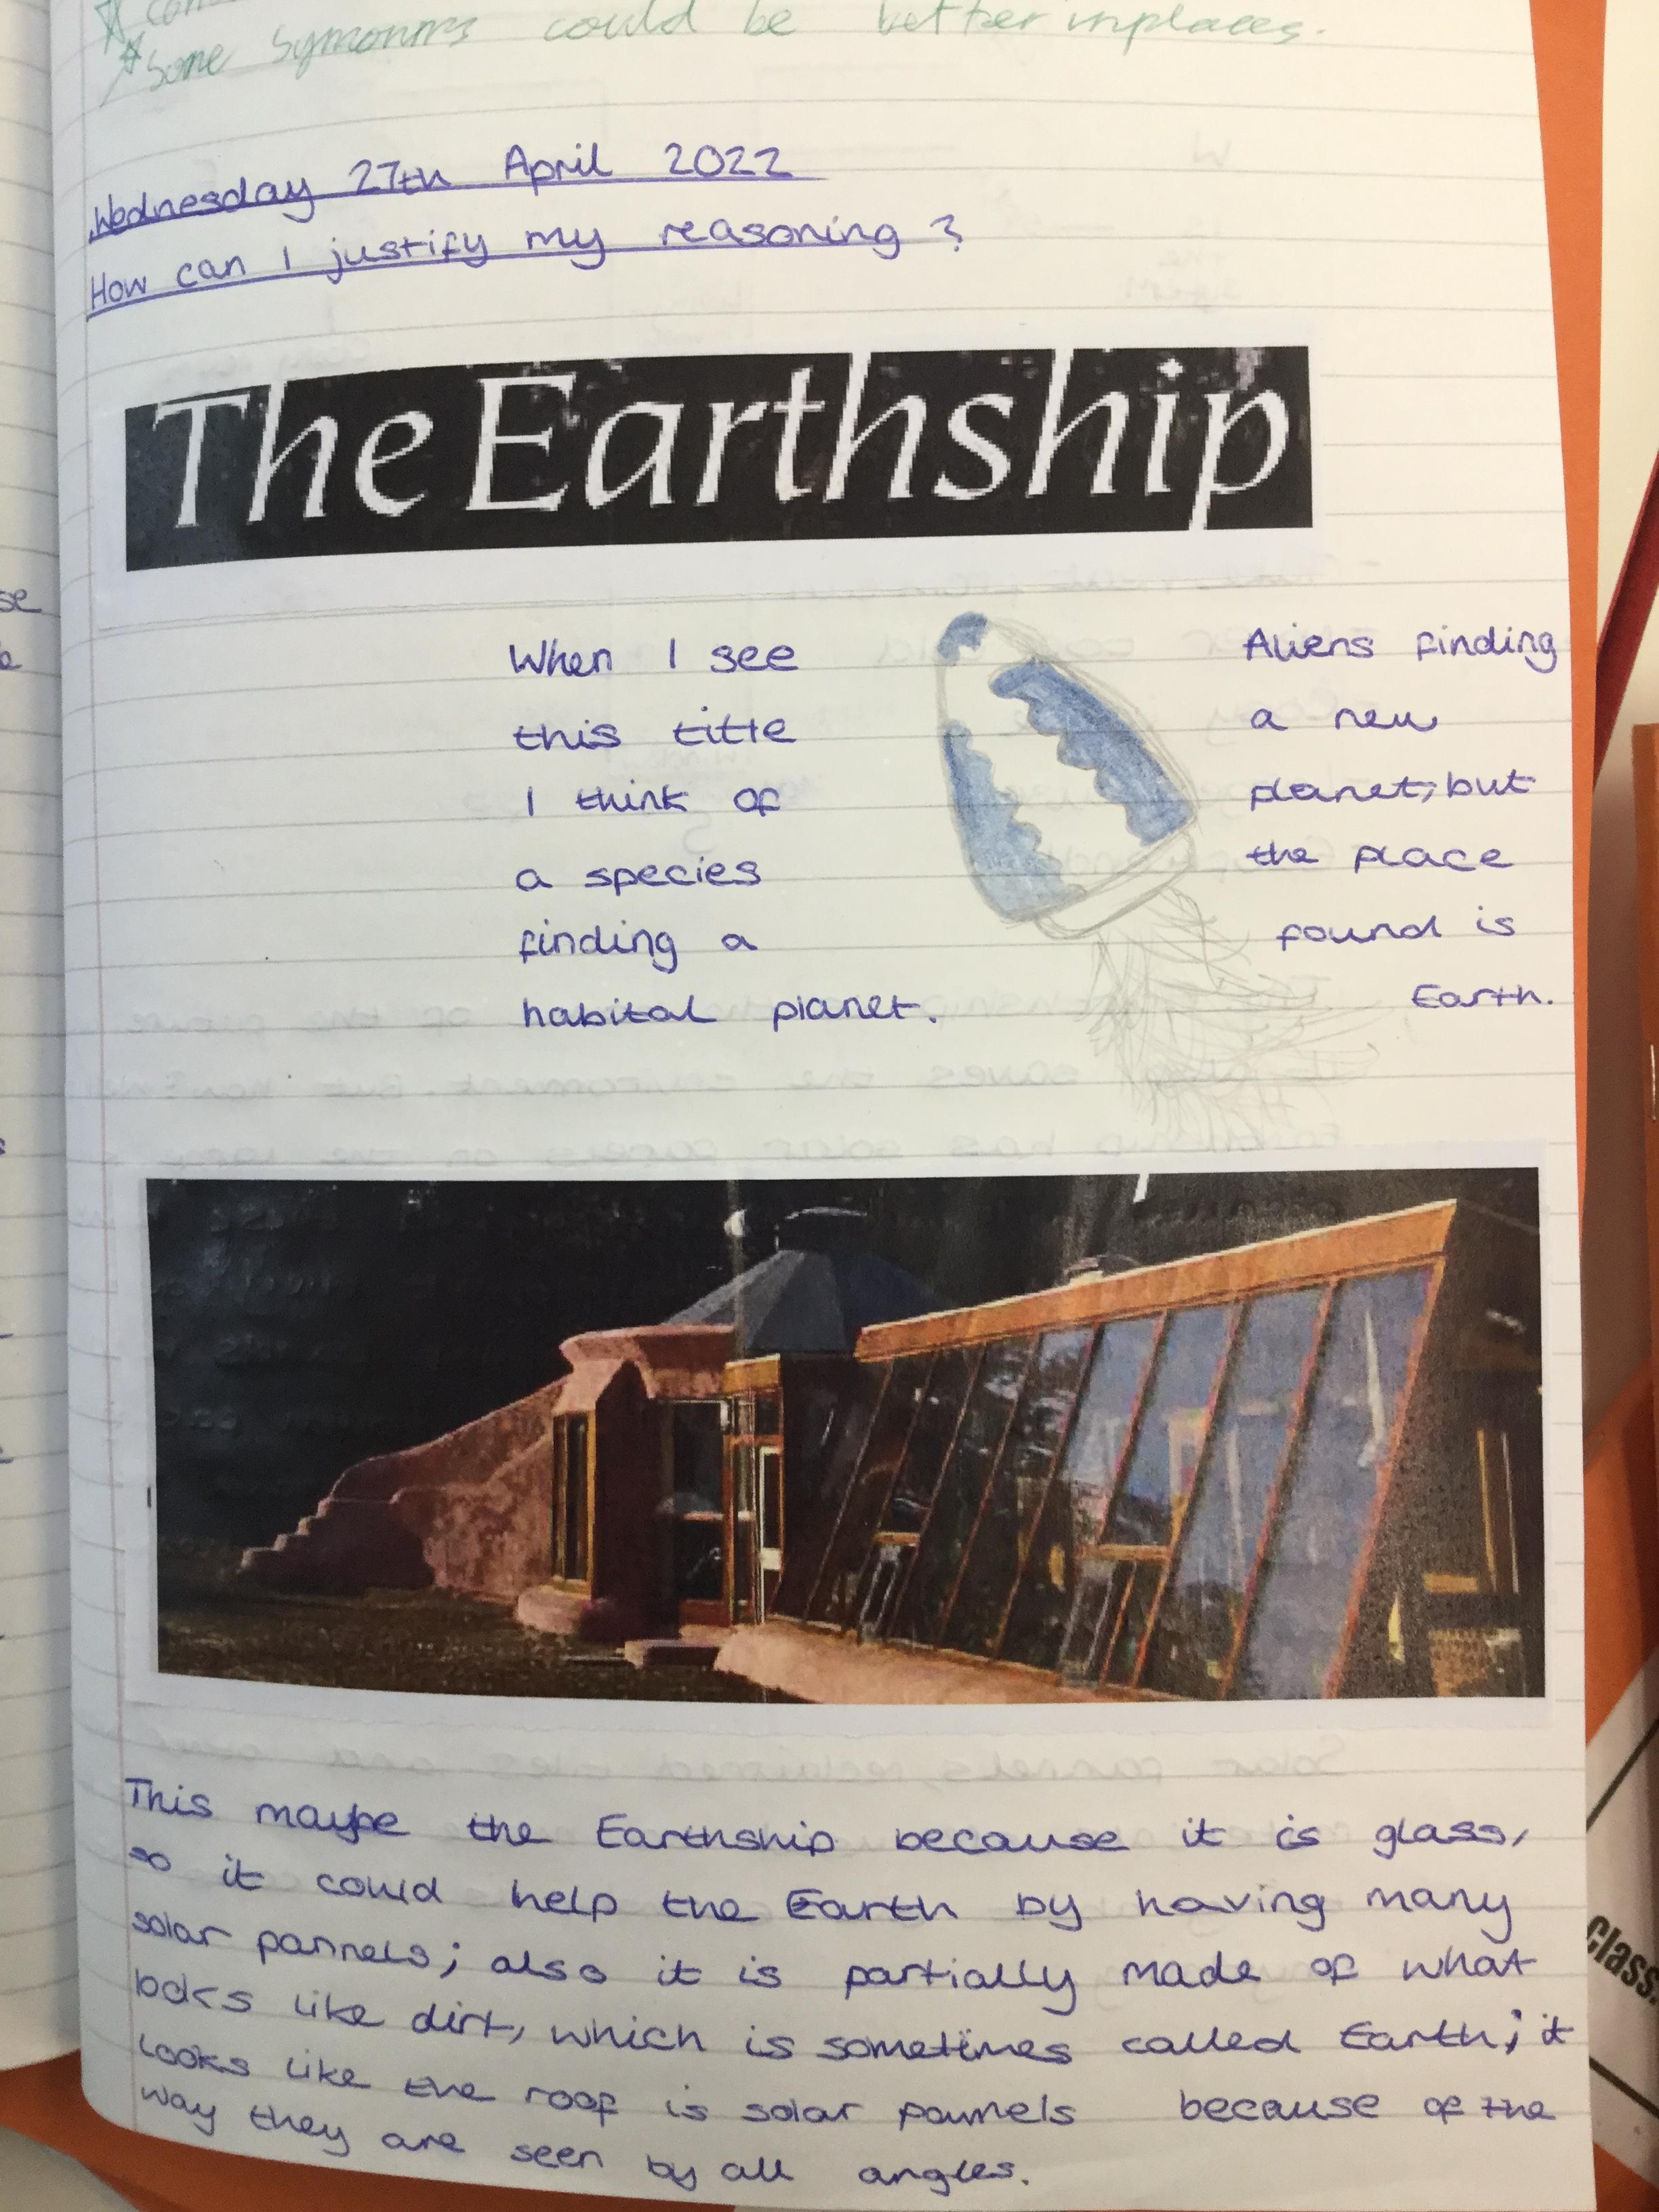 Some Symonms could be better inplaces.
Wednesday 27th April 2022
How can I justify my reasoning?
The Earthship
When I see
this title
I think of
a species
finding a
habital planet.
Aliens finding
a new
planet; but
the place
found is
Earth.
This maybe the Earthship because it is glass,
so it could help the Earth by having many
solar pannels; also it is partially made of what
looks like dirt, which is sometimes called Earth; it
looks like the roof is solar pannels because of the
way they are seen by all angles.
class